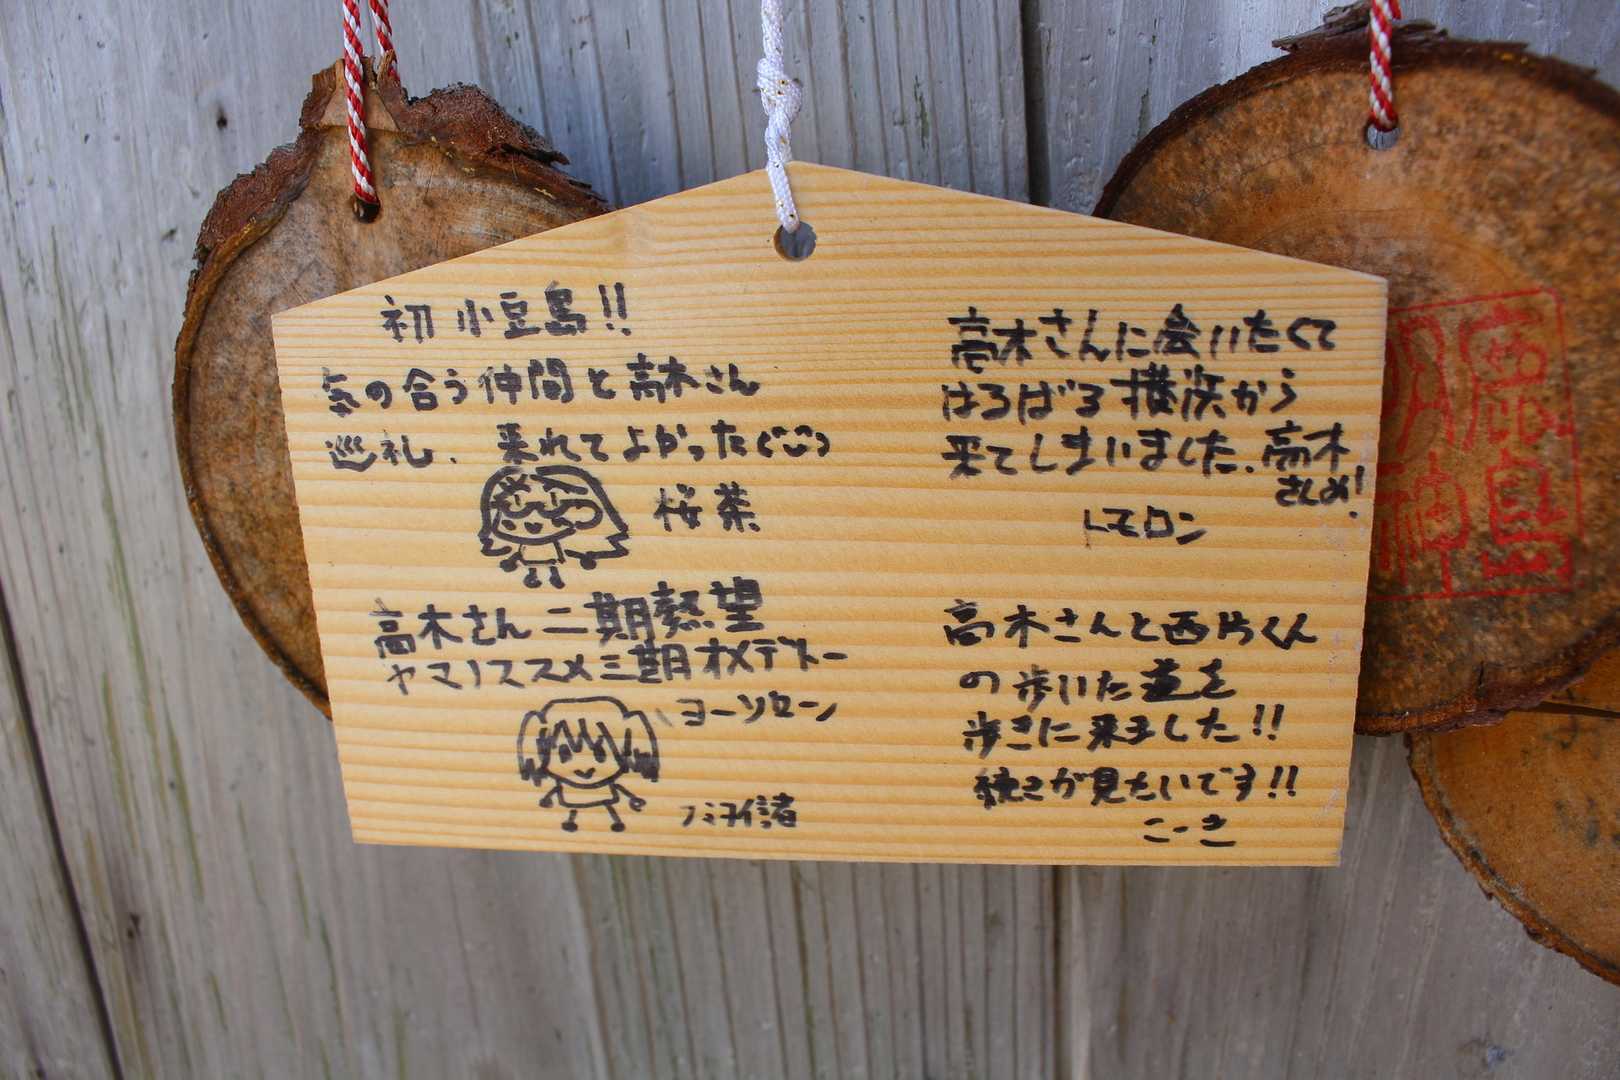 初 小豆島!!
気の合う仲間と高木さん
巡礼、来れてよかった
桜茶
高木さん二期熱望
ヤマノススメ三期オメデトー
ヨーソロー
高木さんに会いたくて
はるばる横浜から
来てしまいました、高木
さんめ!
トモロン
高木さんと西片くん
の歩いた道を
歩きに来ました!!
続きが見たいです!!
こーき
鹿島
明神